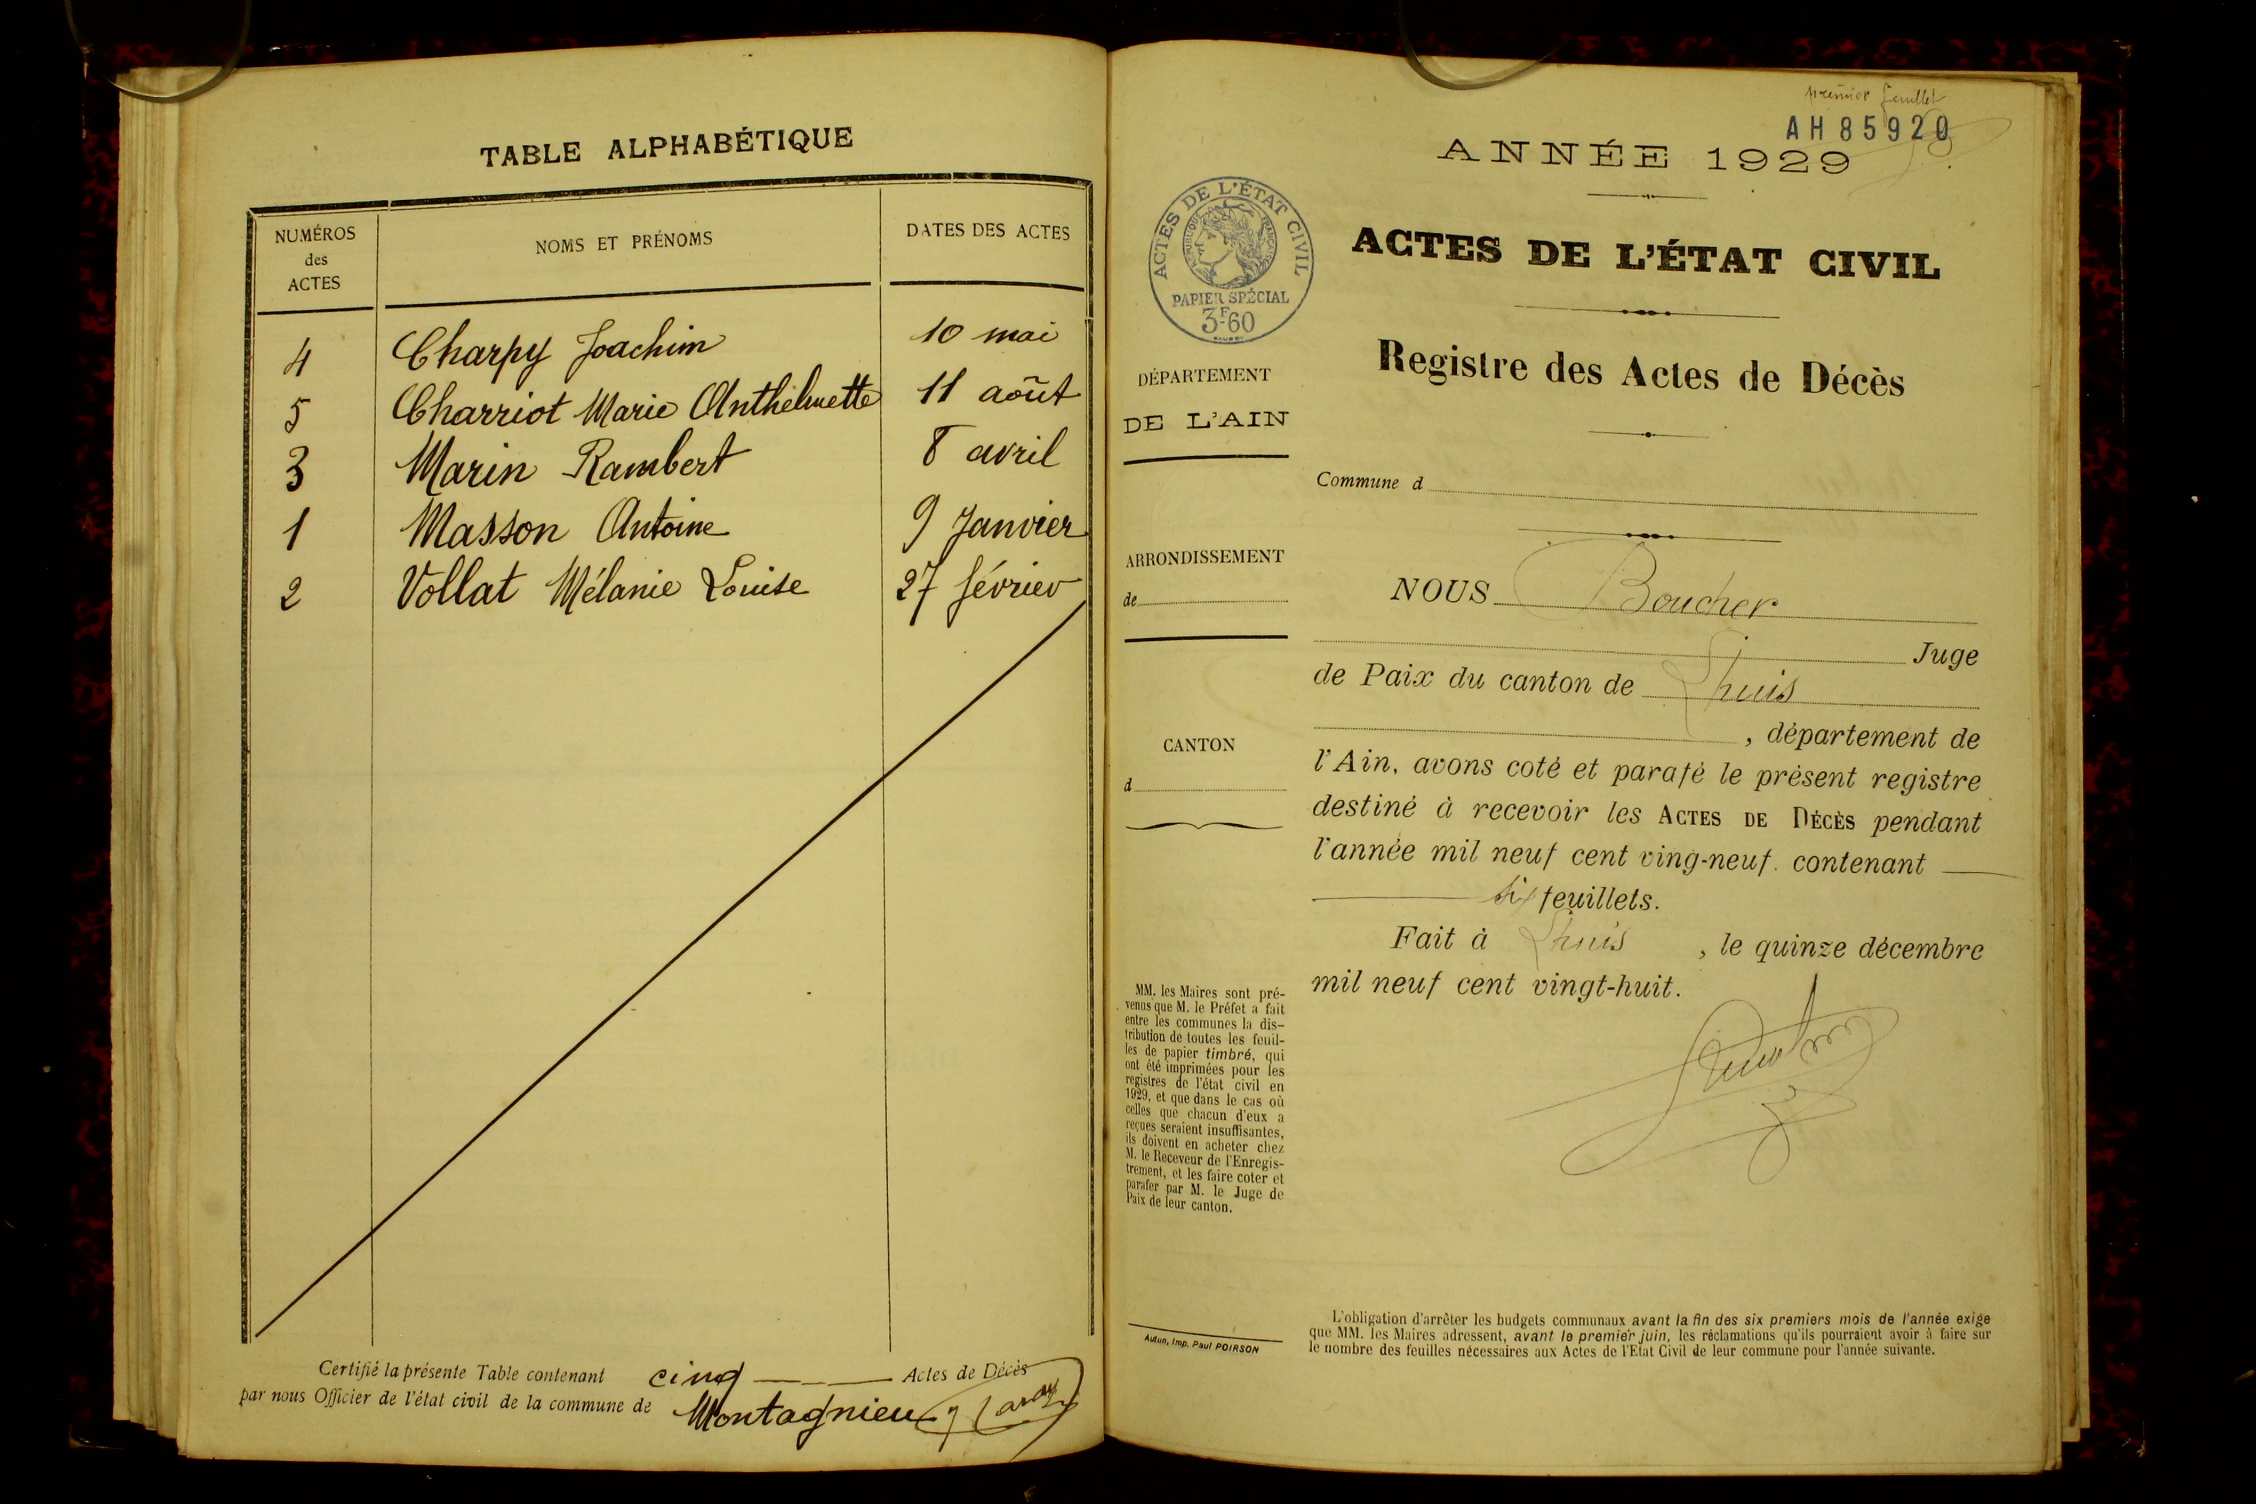 TABLE ALPHABÉTIQUE
NUMÉROS
des
ACTES
NOMS ET PRÉNOMS
DATES DES ACTES
4 Charpy Joachim 10 mai
5 Charriot Marie Anthelmette 11 août
3 Marin Rambert 8 avril
1 Masson Antoine 9 Janvier
2 Vollat Mélanie Louise 27 février
Certifié la présente Table contenant cinq Actes de Décès
par nous Officier de l'état civil de la commune de Montagnieu
premier feuillet
AH 85920
ANNÉE 1929
ACTES DE L'ÉTAT CIVIL
RÉPUBLIQUE FRANÇAISE
PAPIER SPÉCIAL
3F60
ACTES DE L'ÉTAT CIVIL
Registre des Actes de Décès
DÉPARTEMENT
DE L'AIN
Commune d
ARRONDISSEMENT
de
CANTON
d
NOUS Boucher
Juge
de Paix du canton de Lhuis
, département de
l'Ain, avons coté et parafé le présent registre
destiné à recevoir les ACTES DE DÉCÈS pendant
l'année mil neuf cent ving-neuf. contenant
six feuillets.
Fait à Lhuis, le quinze décembre
mil neuf cent vingt-huit.
MM. les Maires sont pré-
venus que M. le Préfet a fait
entre les communes la dis-
tribution de toutes les feuil-
les de papier timbré, qui
ont été imprimées pour les
registres de l'état civil en
1929, et que dans le cas où
celles que chacun d'eux a
reçues seraient insuffisantes,
ils doivent en acheter chez
M. le Receveur de l'Enregis-
trement, et les faire coter et
parafer par M. le Juge de
Paix de leur canton.
Autun, Imp. Paul POIRSON
L'obligation d'arrêter les budgets communaux avant la fin des six premiers mois de l'année exige
que MM. les Maires adressent, avant le premier juin, les réclamations qu'ils pourraient avoir à faire sur
le nombre des feuilles nécessaires aux Actes de l'Etat Civil de leur commune pour l'année suivante.